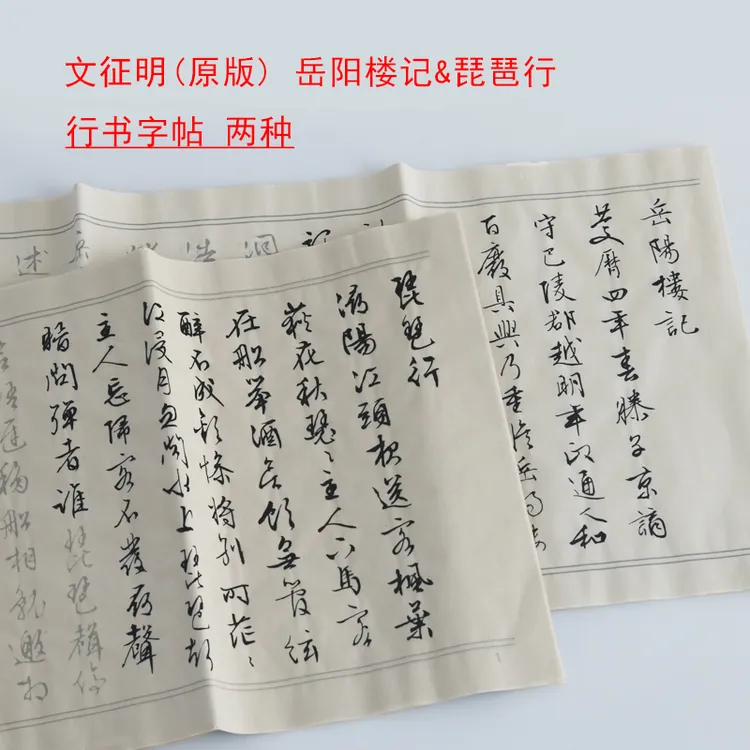 文征明(原版) 岳阳楼记&琵琶行
行书字帖 两种
岳陽樓記
慶曆四年春滕子京謫
守巴陵郡越明年政通人和
百廢具興乃重修岳陽
洞
浩
述
琵琶行
潯陽江頭夜送客楓葉
荻花秋瑟〻主人下馬客
在船舉酒欲飲無管絃
醉不成歡慘將別時茫〻
江浸月忽聞水上琵琶聲
主人忘歸客不發尋聲
暗問彈者誰琵琶聲停
語遲移船相邀相